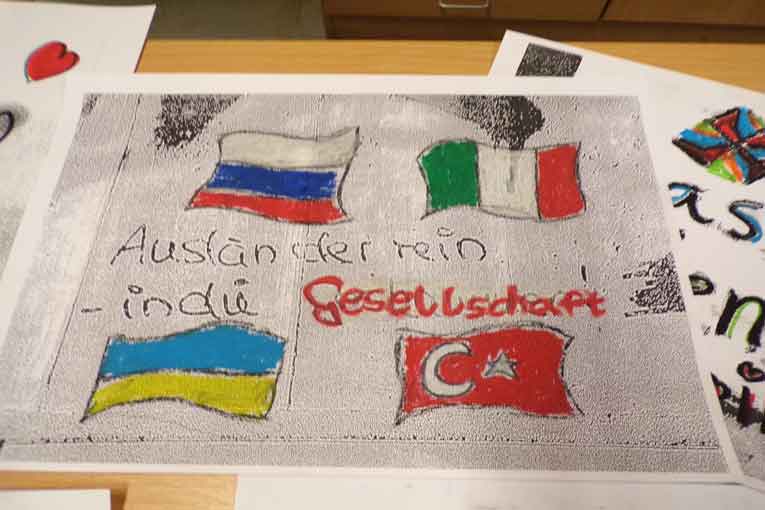 Ausländer rein
- in die Gesellschaft